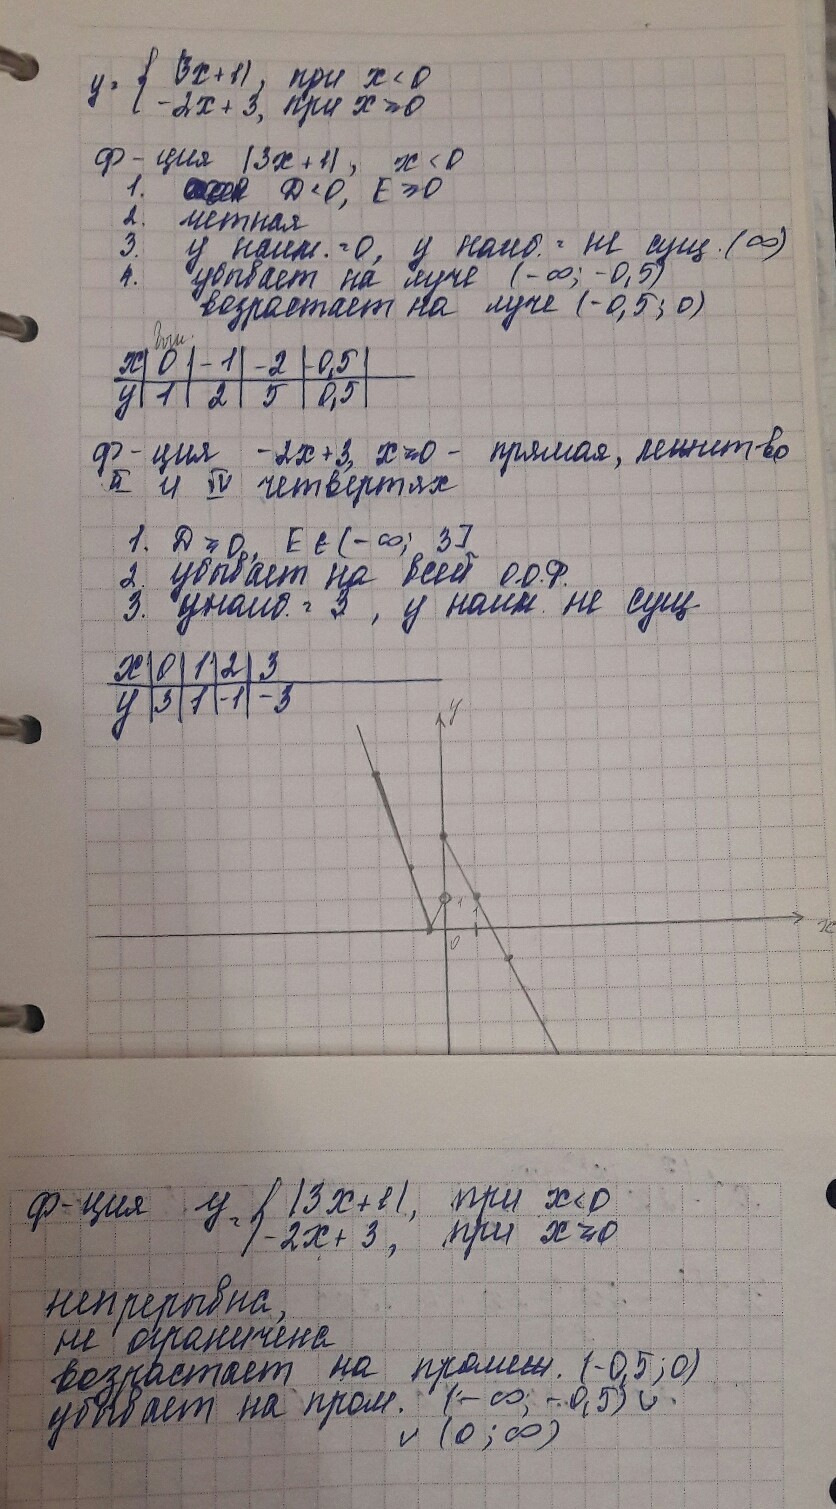 y = { |3x+1|, при x<0
-2x+3, при x⩾0
Ф-ция |3x+1|, x<0
1. D<0, E⩾0
2. четная
3. y наим.=0, y наиб.= не сущ. (∞)
4. убывает на луче (-∞; -0,5)
возрастает на луче (-0,5; 0)
x | 0 | -1 | -2 | -0,5 |
y | 1 | 2 | 5 | 0,5 |
Ф-ция -2x+3, x⩾0 - прямая, лежит во
II и IV четвертях
1. D⩾0, E∈(-∞; 3]
2. убывает на всей О.О.Ф.
3. yнаиб.= 3, y наим. не сущ
x | 0 | 1 | 2 | 3
y | 3 | 1 | -1 | -3
y
1
1
0
x
Ф-ция y = { |3x+1|, при x<0
-2x+3, при x⩾0
непрерывна,
не ограничена
возрастает на промеж. (-0,5; 0)
убывает на пром. (-∞; -0,5) ∪
∪ (0; ∞)